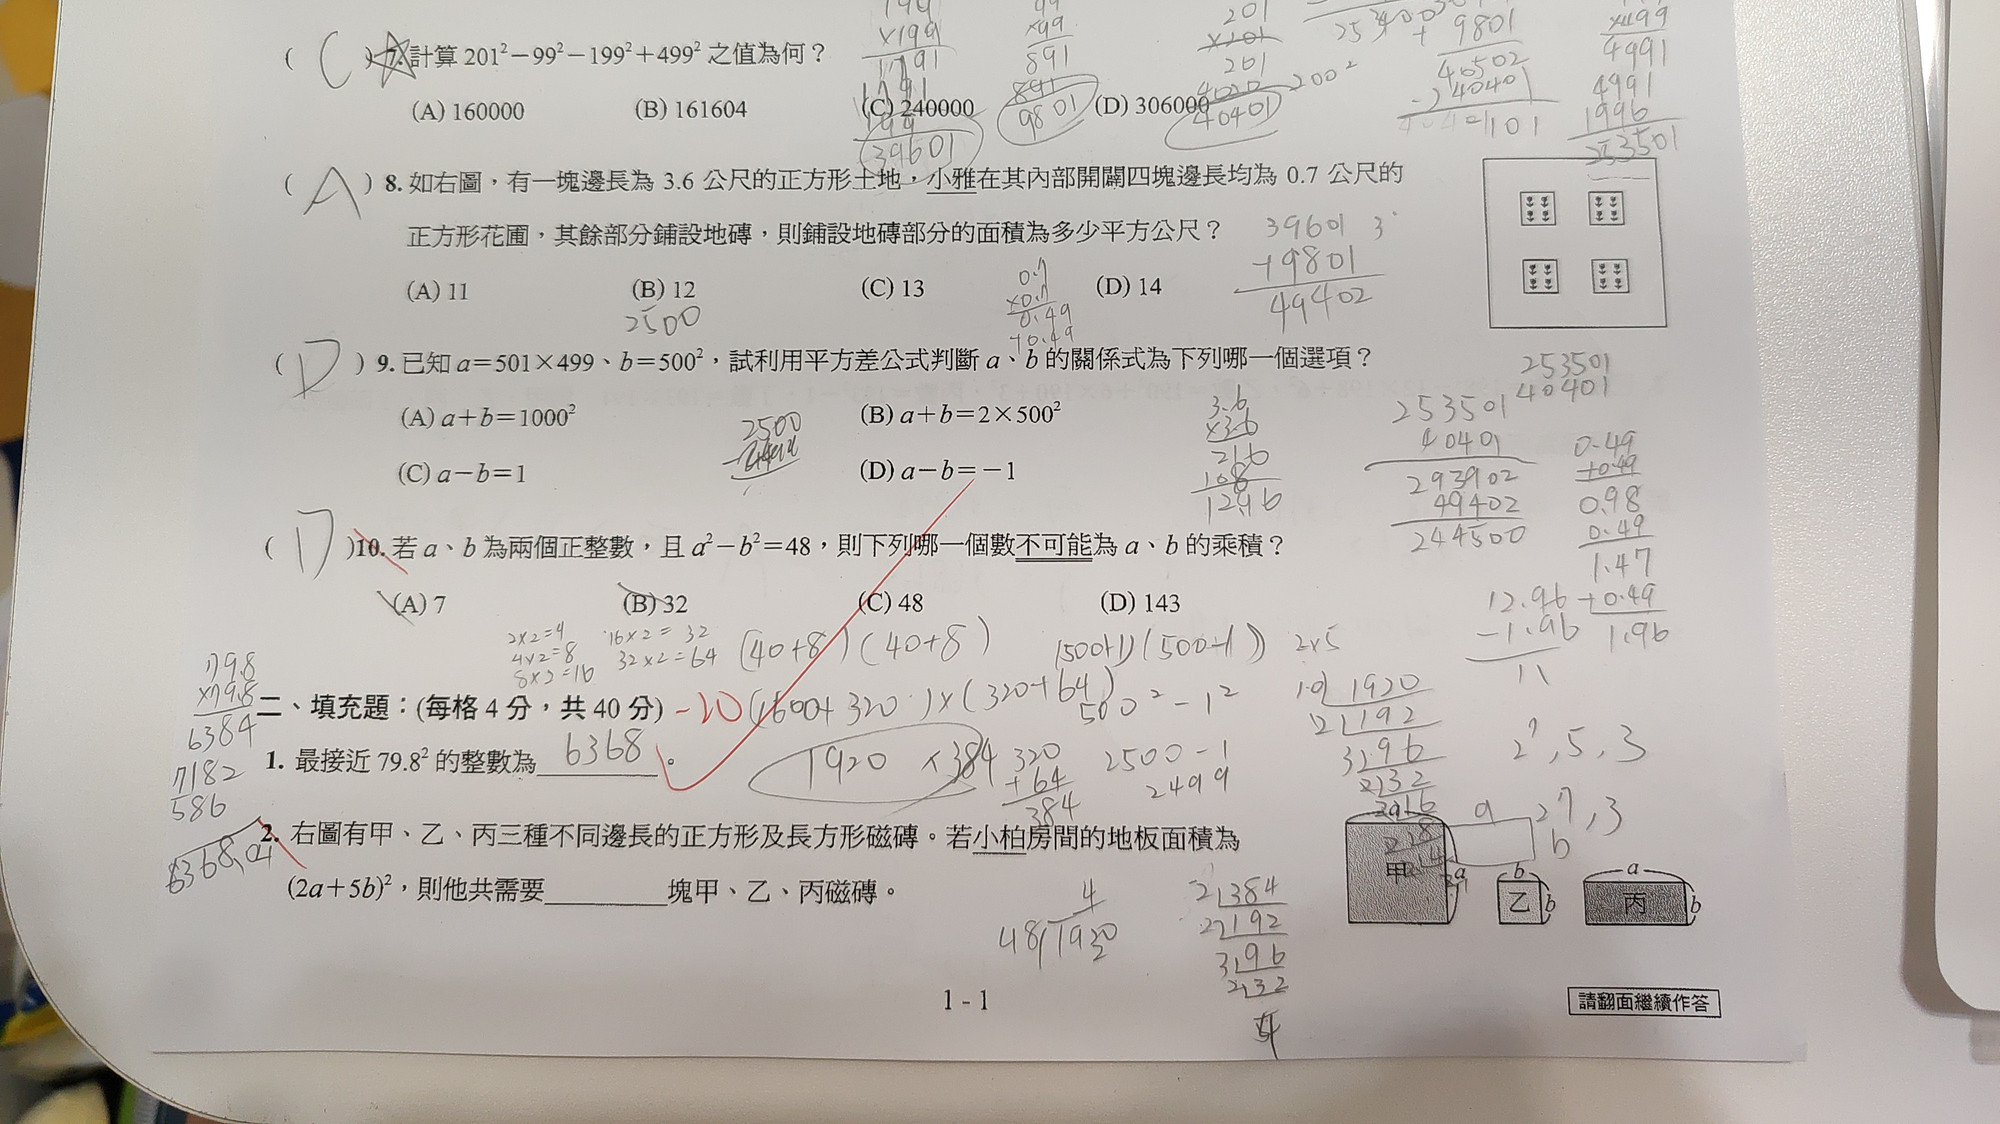 ( C ) 7. 計算 201²－99²－199²＋499² 之值為何？
(A) 160000 (B) 161604 (C) 240000 (D) 306000
×199
1791
1791
199
39601
×99
891
891
9801
201
×201
201
4020
40401
200²
9801
40502
40401
×499
4491
4491
1996
253501
( A ) 8. 如右圖，有一塊邊長為 3.6 公尺的正方形土地，小雅在其內部開闢四塊邊長均為 0.7 公尺的
正方形花圃，其餘部分鋪設地磚，則鋪設地磚部分的面積為多少平方公尺？
(A) 11 (B) 12 (C) 13 (D) 14
2500
0.7
×0.7
0.49
+0.49
39601
+9801
49402
( D ) 9. 已知 a＝501×499、b＝500²，試利用平方差公式判斷 a、b 的關係式為下列哪一個選項？
(A) a＋b＝1000² (B) a＋b＝2×500²
(C) a－b＝1 (D) a－b＝－1
2500
3.6
×3.6
216
108
12.96
253501
40401
253501
40401
293902
49402
244500
0.49
+0.49
0.98
0.49
1.47
+0.49
1.96
12.96
-1.96
11
( D ) 10. 若 a、b 為兩個正整數，且 a²－b²＝48，則下列哪一個數不可能為 a、b 的乘積？
(A) 7 (B) 32 (C) 48 (D) 143
2×2=4
4×2=8
8×2=16
16×2=32
32×2=64
(40+8)(40+8)
(500+1)(500-1)
2×5
二、填充題：(每格 4 分，共 40 分) -20
(1600+320)×(320+64)
500²-1²
1920×384
320
+64
384
2500-1
2499
79.8
×79.8
6384
7182
586
6368.04
1. 最接近 79.8² 的整數為 6368 。
10 1920
2 192
3 96
2 32
2⁷,5,3
2⁷,3
2. 右圖有甲、乙、丙三種不同邊長的正方形及長方形磁磚。若小柏房間的地板面積為
(2a＋5b)²，則他共需要 塊甲、乙、丙磁磚。
a
b
甲 a
b 乙 b
a 丙 b
4
48 1920
2 384
2 192
3 96
2 32
1 - 1
請翻面繼續作答